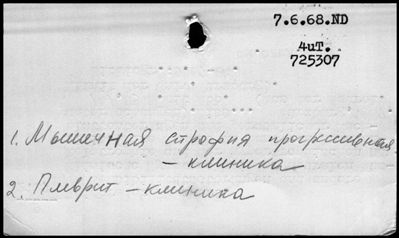 7.6.68.ND
4uT.
725307
1. Мышечная строфия прогрессивная
– клиника
2. Плеврит – клиника